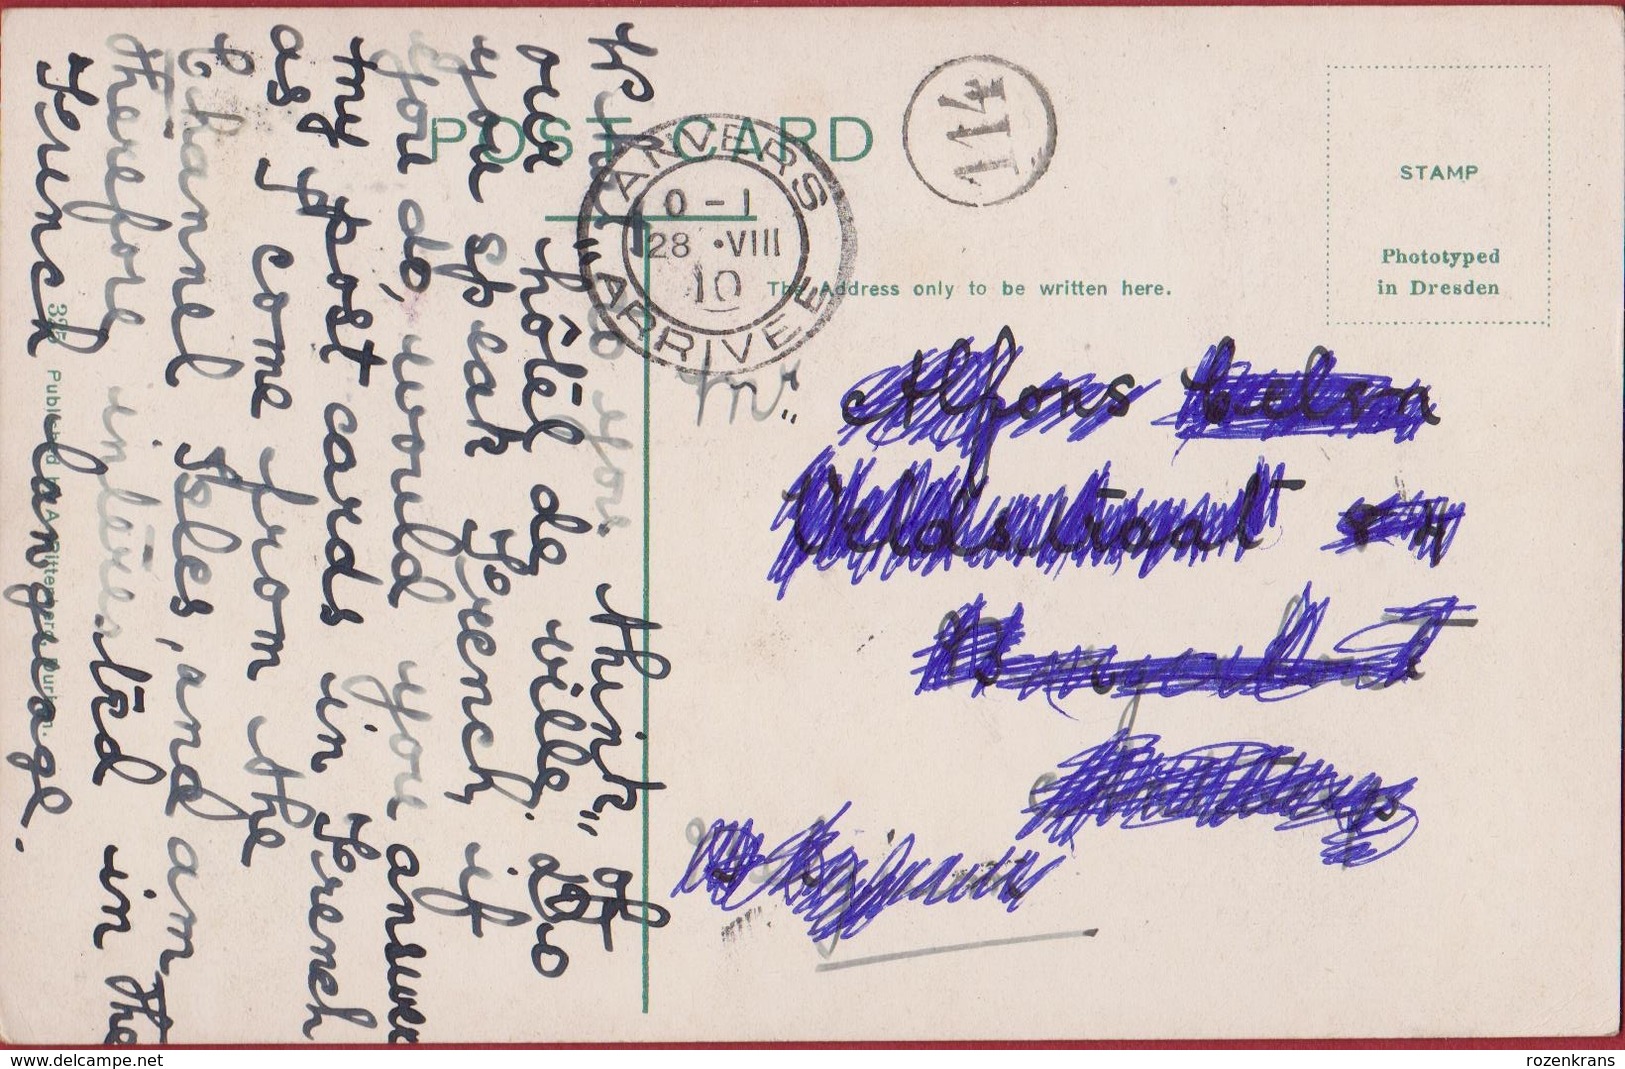 POST CARD
ANVERS
0-1
28 •VIII
10
ARRIVEE
114
STAMP
Phototyped
in Dresden
The Address only to be written here.
What do you think of
our "hôtel de ville". Do
you speak French, if
you do, would you answer
my post cards in French
as I come from the
Channel Isles, and am
therefore interested in the
French language.
325 Published by A. Rittenberg, Durban.
Mr
Alfons
Veldstraat
www.delcampe.net
rozenkrans